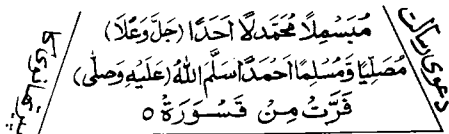 دعویٰ رسالت
مُبَسْمِلًا مُحَمِّدَلًا اَحَدًا (جَلَّ وَعَلَا)
مُصَلِّيًا وَّمُسْلِمًا اَحْمَدًا سَلَّمَ اللهُ (عَلَيْهِ وَصَلّٰى)
فَرَّتْ مِنْ قَسْوَرَةٍ ۝